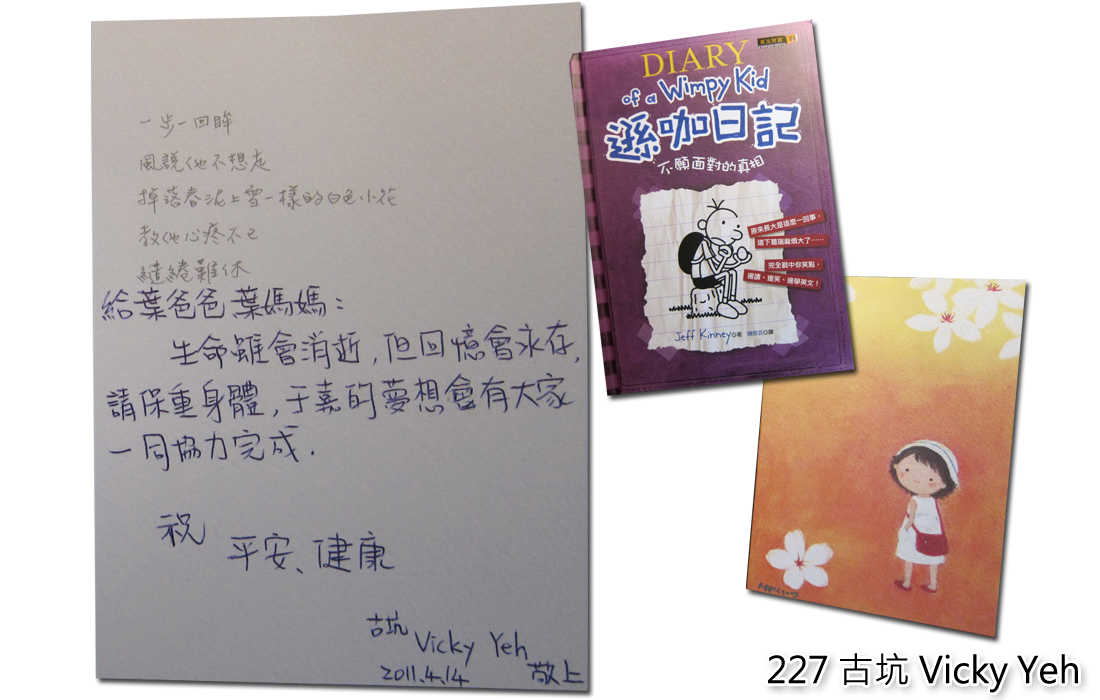 一步一回眸
風說他不想走
掉落春泥上雪一樣的白色小花
教他心疼不已
繾綣難休
給葉爸爸葉媽媽：
生命雖會消逝,但回憶會永存,
請保重身體,于嘉的夢想會有大家
一同協力完成.
祝
平安、健康
古坑 Vicky Yeh
2011.4.14 敬上
DIARY
of a Wimpy Kid
遜咖日記
不願面對的真相
原來長大是這麼一回事，
這下葛瑞麻煩大了……
完全戳中你笑點，
邊讀、邊笑、邊學英文！
Jeff Kinney◎著
227 古坑 Vicky Yeh